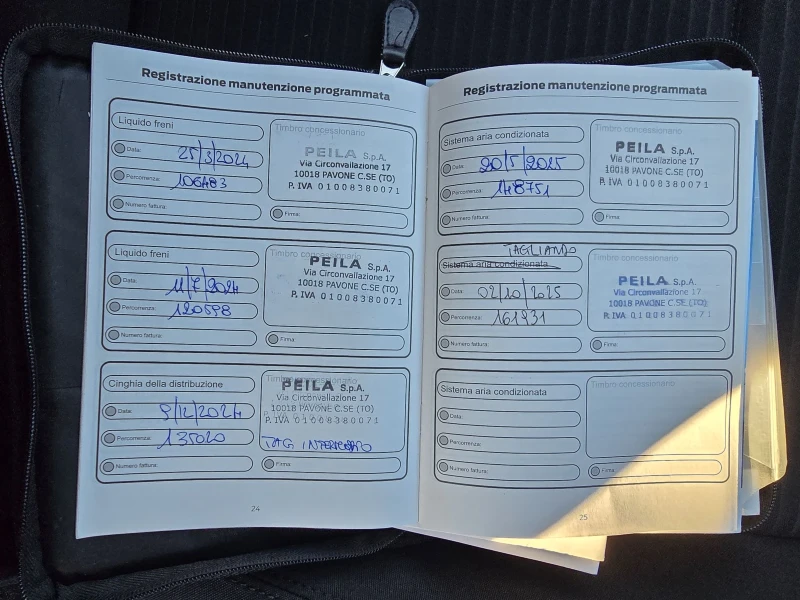 Registrazione manutenzione programmata
Liquido freni
Timbro concessionario
Data: 25/3/2024
PEILA S.p.A.
Via Circonvallazione 17
10018 PAVONE C.SE (TO)
P. IVA 01008380071
Percorrenza: 106483
Numero fattura:
Firma:
Liquido freni
Timbro concessionario
Data: 11/7/2024
PEILA S.p.A.
Via Circonvallazione 17
10018 PAVONE C.SE (TO)
P. IVA 01008380071
Percorrenza: 120598
Numero fattura:
Firma:
Cinghia della distribuzione
Timbro concessionario
Data: 9/12/2024
PEILA S.p.A.
Via Circonvallazione 17
10018 PAVONE C.SE (TO)
P. IVA 01008380071
Percorrenza: 135020
TAG
Numero fattura:
Firma:
24
Registrazione manutenzione programmata
Sistema aria condizionata
Timbro concessionario
Data: 20/5/2025
PEILA S.p.A.
Via Circonvallazione 17
10018 PAVONE C.SE (TO)
P. IVA 01008380071
Percorrenza: 148751
Numero fattura:
Firma:
TAGLIANDO
Sistema aria condizionata
Timbro concessionario
Data: 02/10/2025
PEILA S.p.A.
Via Circonvallazione 17
10018 PAVONE C.SE (TO)
P. IVA 01008380071
Percorrenza: 161931
Numero fattura:
Firma:
Sistema aria condizionata
Timbro concessionario
Data:
Percorrenza:
Numero fattura:
Firma:
25